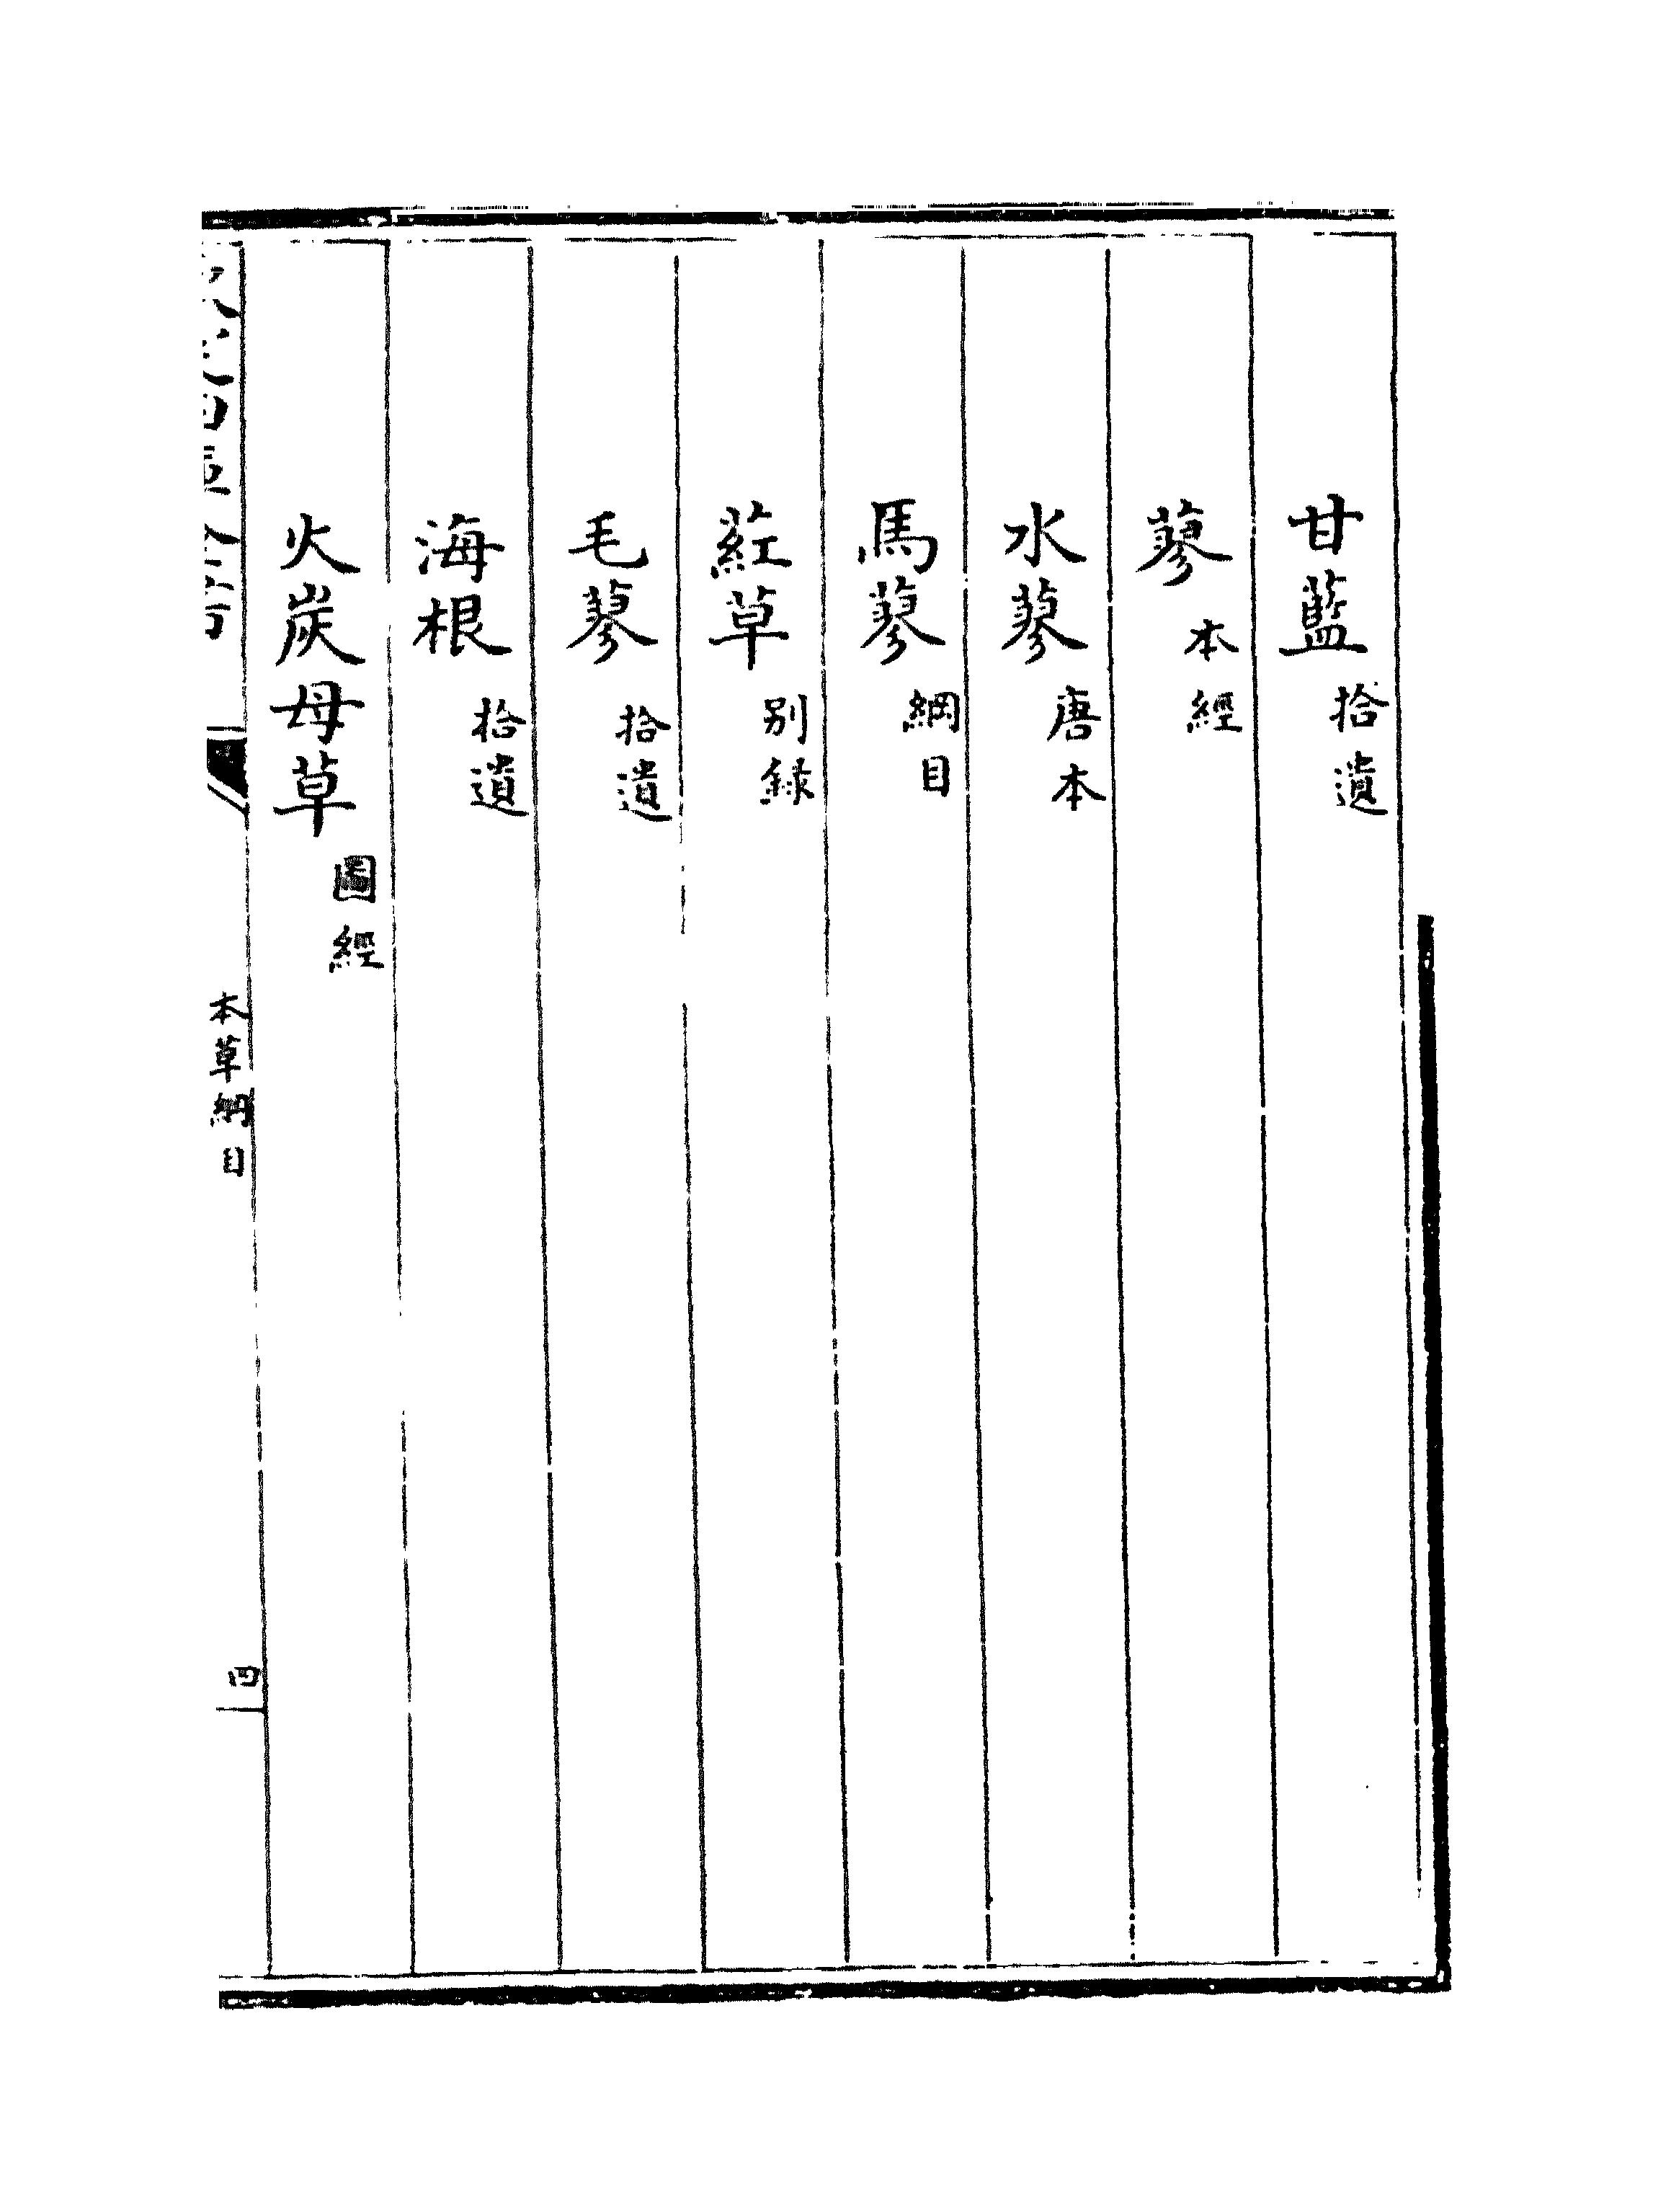 甘藍拾遺
蓼本經
水蓼唐本
馬蓼綱目
葒草别録
毛蓼拾遺
海根拾遺
火炭母草圖經
本草綱目
四